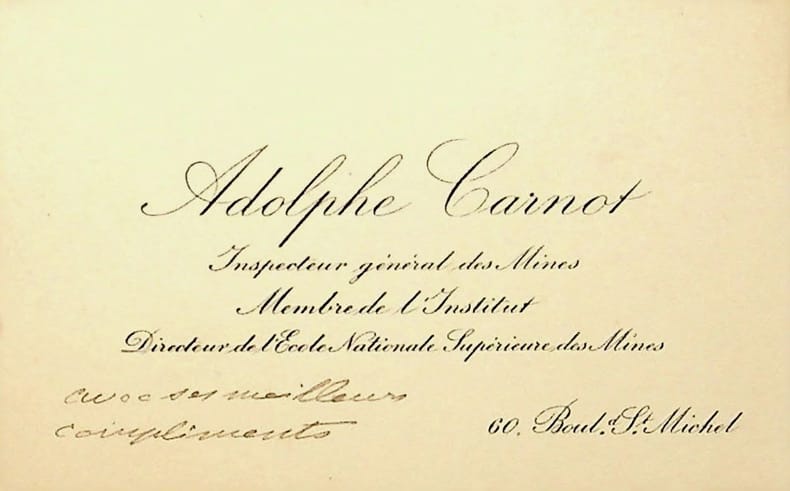 Adolphe Carnot
Inspecteur général des Mines
Membre de l'Institut
Directeur de l'Ecole Nationale Supérieure des Mines
avec ses meilleurs
compliments
60. Boul.d St. Michel